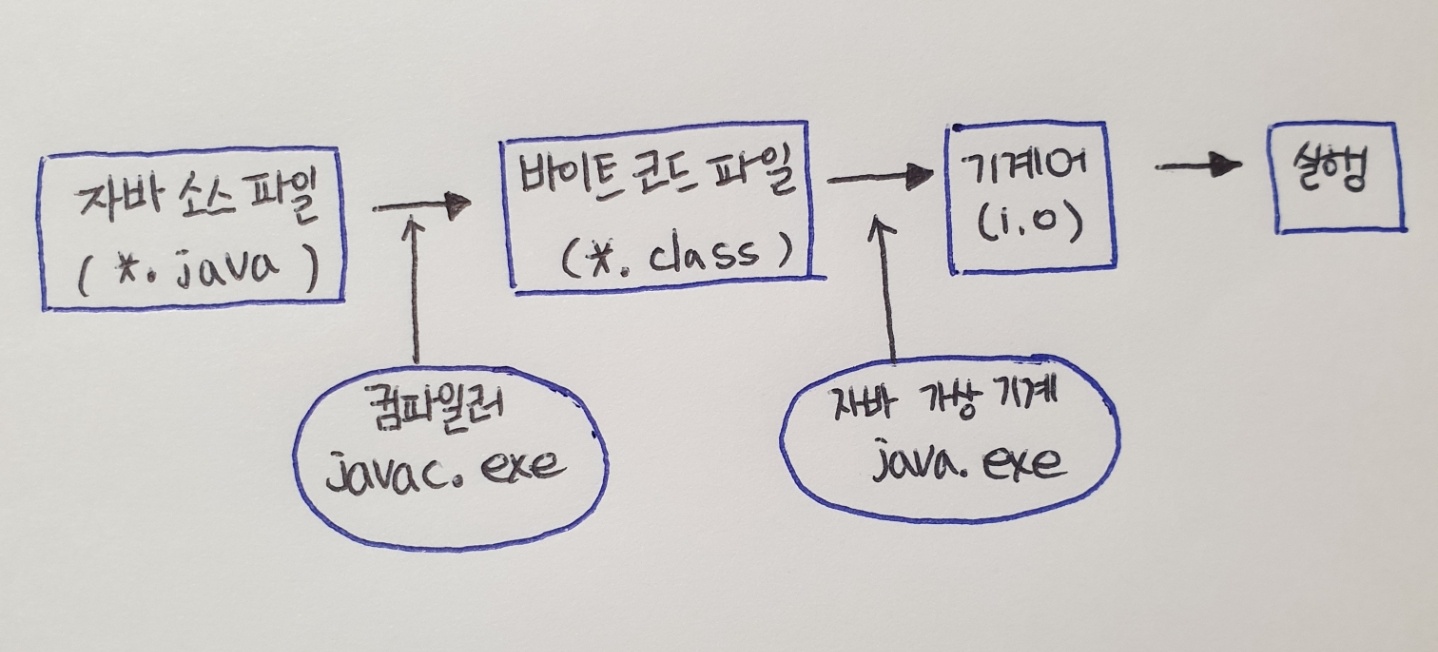 자바 소스 파일
(*.java)
바이트 코드 파일
(*.class)
기계어
(1.0)
실행
컴파일러
javac.exe
자바 가상 기계
java.exe